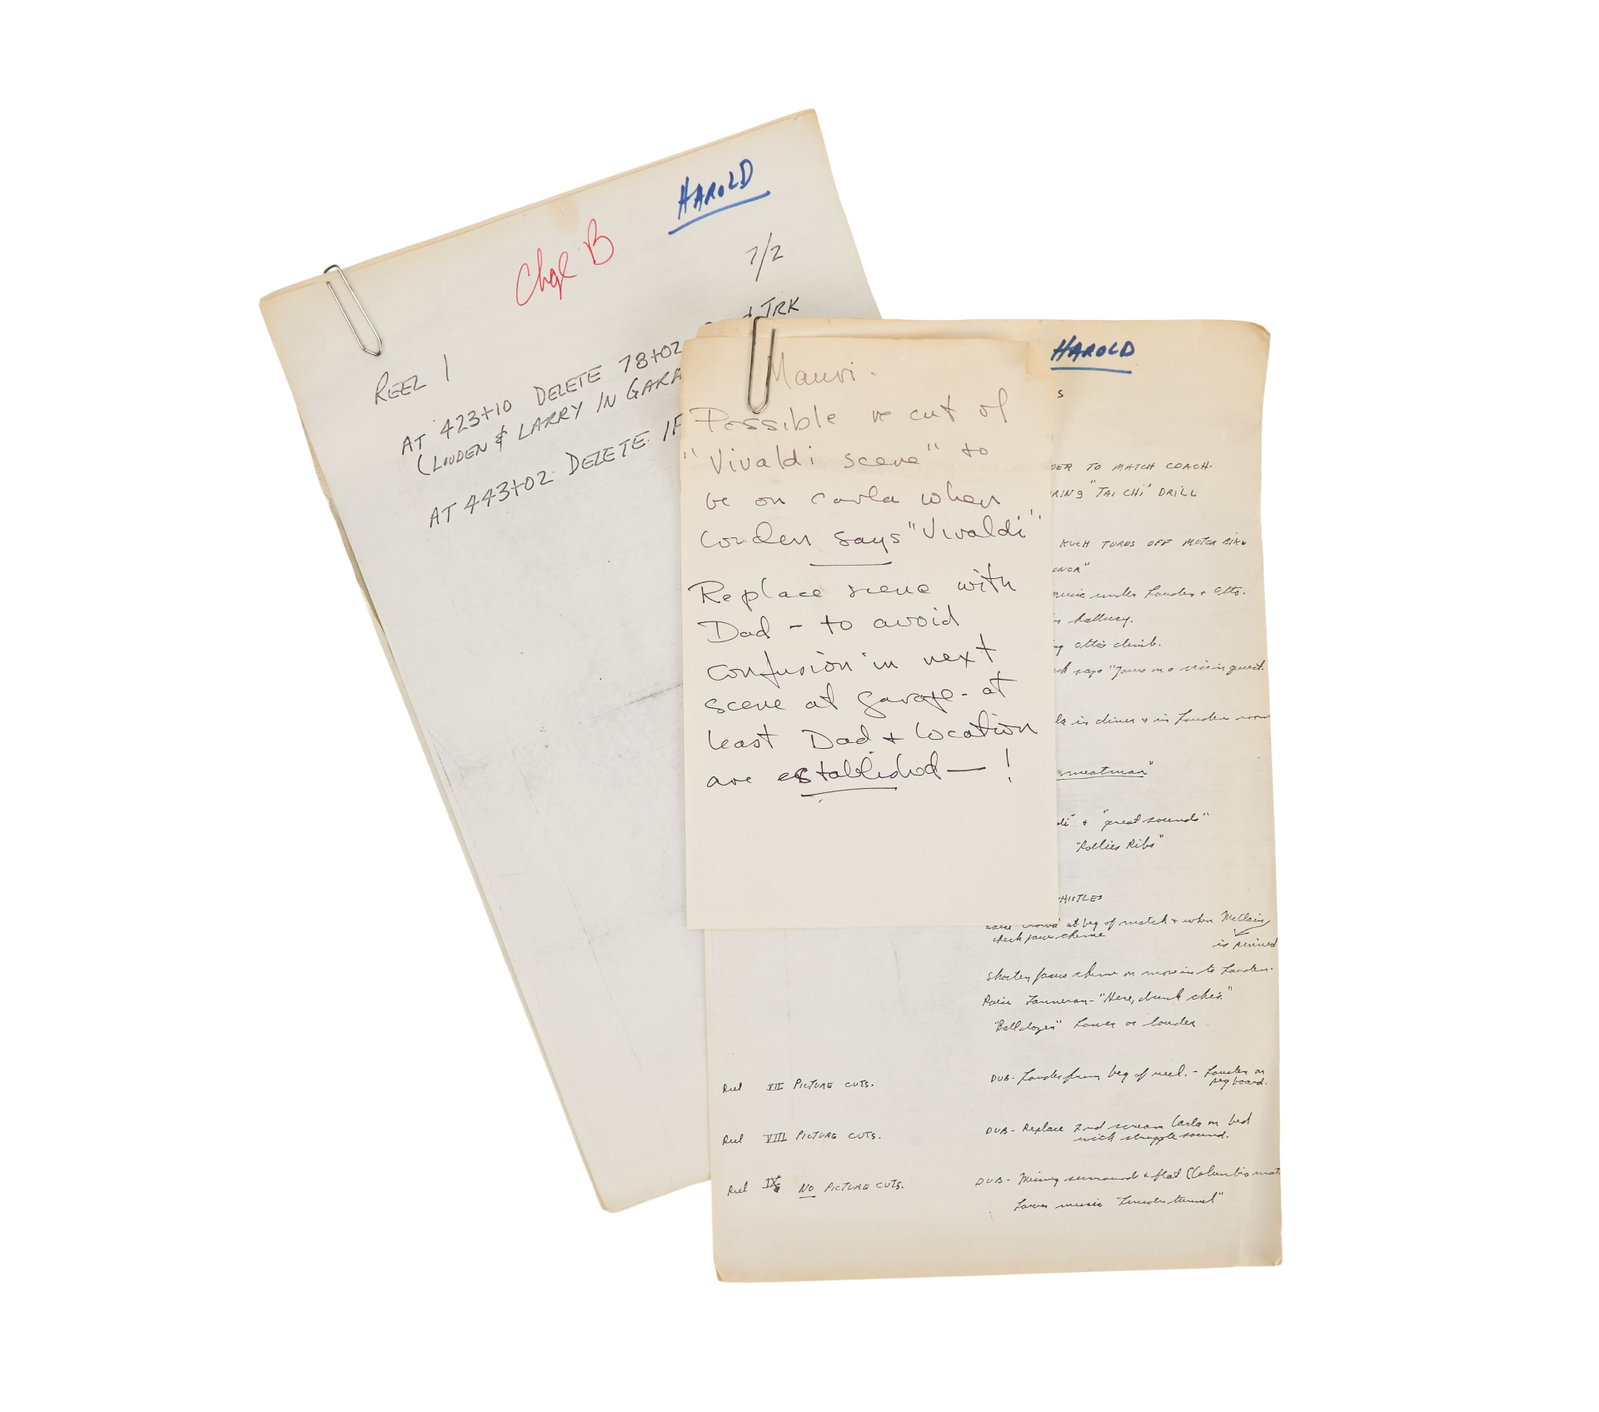 HAROLD
Chge B
7/2
REEL 1
AT 423+10 DELETE 78+02 TRK
(LOUDEN & LARRY IN GARA
AT 443+02 DELETE 1F
HAROLD
Mauri.
Possible re cut of
"Vivaldi scene" to
be on Carla when
Louden says "Vivaldi"
Replace scene with
Dad - to avoid
confusion in next
scene at garage - at
least Dad + location
are established — !
S
DER TO MATCH COACH.
RING "TAI CHI" DRILL
KUCH TURNS OFF MOTOR BIKE
ONOR"
music under Louden + Otto.
hallway.
Otto's climb.
says "Jane on a vision quest.
la in diner + in Louden room
meatman"
di" + "great sounds"
"Rollies Ribs"
HISTLES
crowd at beg of match + when McClain
check jaws theme
is pinned
Shorten jaws theme on move in to Louden.
Raise Tanneran - "Here, drink this."
"Balldozer" Lower or louder
Reel VII PICTURE CUTS.
DUB - Louder from beg of reel. - Louden on
peg board.
Reel VIII PICTURE CUTS.
DUB - Replace 2nd scream Carla on bed
with struggle sound.
Reel IX NO PICTURE CUTS.
DUB - Mixing surround + flat (Columbia
Lower music "Lincoln tunnel"